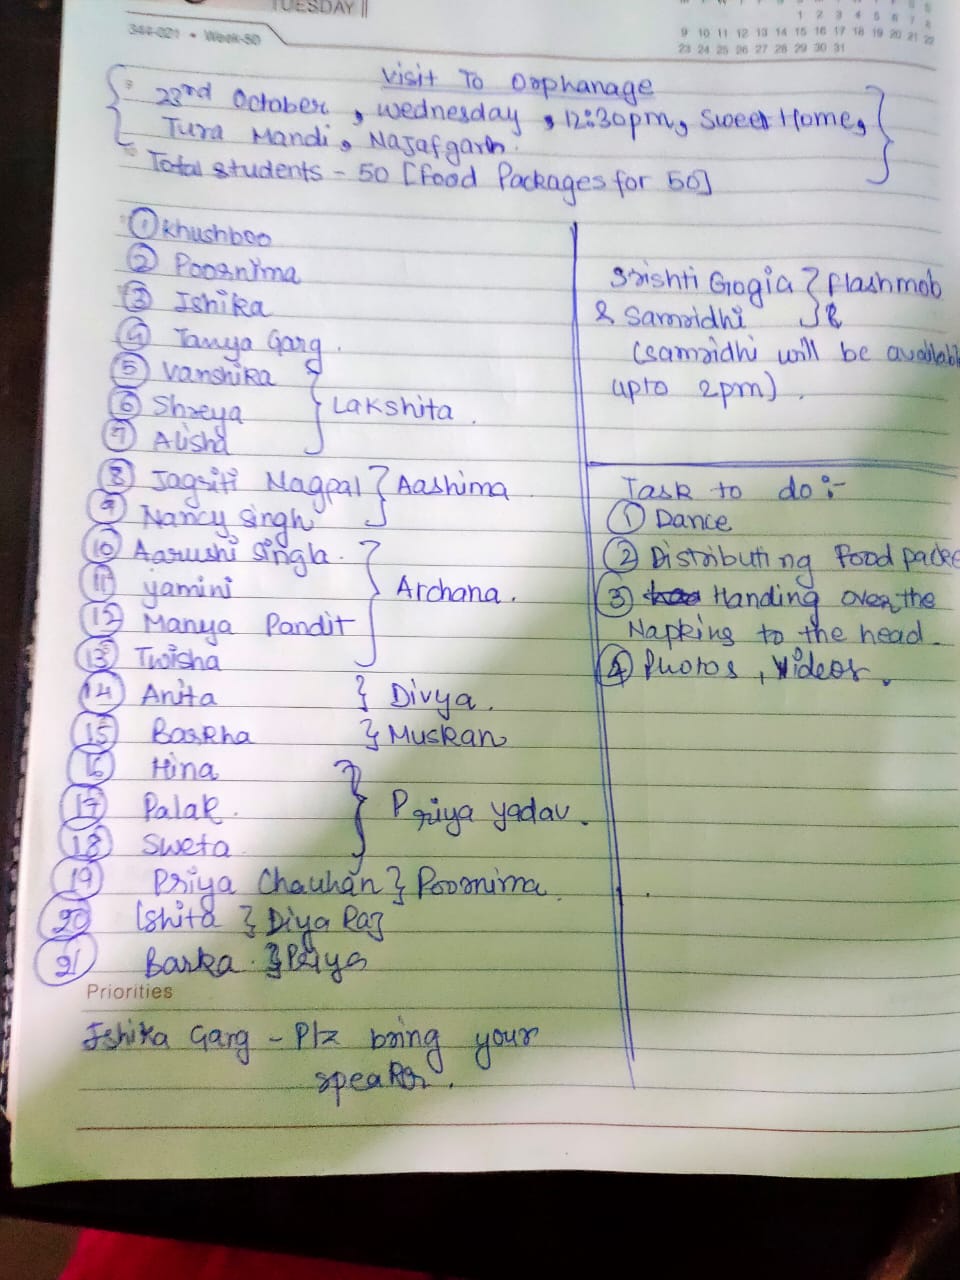 TUESDAY
344-021 • Week-50
1 2 3 4 5 6 7 8
9 10 11 12 13 14 15 16 17 18 19 20 21 22
23 24 25 26 27 28 29 30 31
Visit To Orphanage
23rd October, wednesday, 12:30pm, Sweet Home,
Tura Mandi, Najafgarh.
Total students - 50 [Food Packages for 50]
① Khushboo
② Poornima
③ Ishika
④ Tanya Garg.
⑤ Vanshika
⑥ Shreya } Lakshita.
⑦ Alisha
⑧ Jagriti Nagpal } Aashima
⑨ Nancy Singh
⑩ Aarushi Singla.
⑪ Yamini } Archana.
⑫ Manya Pandit
⑬ Twisha
⑭ Anita } Divya.
⑮ Barkha } Muskan
⑯ Hina
⑰ Palak. } Priya yadav.
⑱ Sweta
⑲ Priya Chauhan } Poornima
⑳ Ishita } Diya Raj
㉑ Barka. } Priya
Srishti Gogia } flashmob
& Samridhi
(samridhi will be available
upto 2pm).
Task to do :-
① Dance
② Distributing Food
③ Handing over the
Napkins to the head
④ Photos, Videos.
Priorities
Ishika Garg - Plz bring your
speaker.